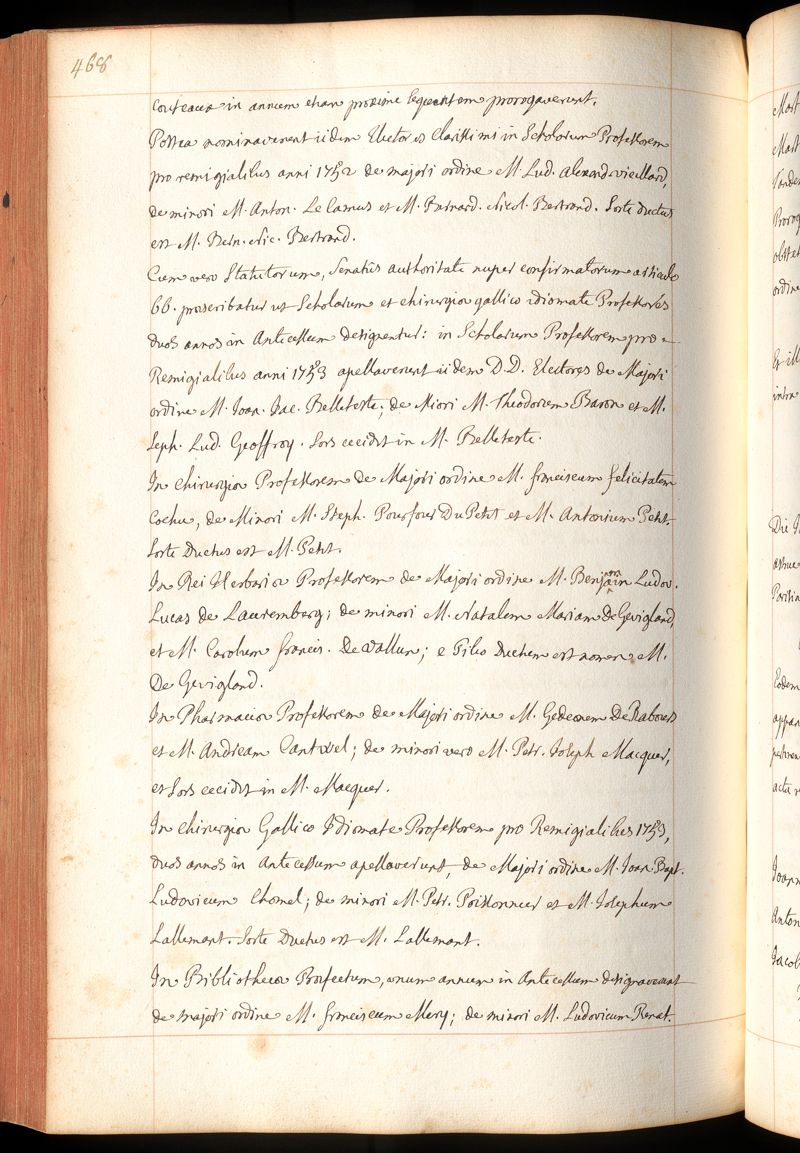 468
Couteaux in annum etiam proxime sequentem prorogaverunt.
Postea nominaverunt iidem Electores Clarissimi in Scholarum Professorem
pro remigialibus anni 1752 de majori ordine M. Lud. Alexand. vieillard,
de minori M. Anton. Le Camus et M. Barnard. Nicol. Bertrand. Sorte ductus
est M. Bern. Nic. Bertrand.
Cum vero Statutorum, Senatus authoritate nuper confirmatorum articulo
66. praescribatur ut Scholarum et chirurgiae gallico idiomate Professores
duos annos in Antecessum designentur: in Scholarum Professorem pro
Remigialibus anni 1753 apellaverunt iidem D.D. Electores de Majori
ordine M. Joan. Jac. Belleteste; de Miori M. Theodorum Baron et M.
Steph. Lud. Geoffroy. Sors cecidit in M. Belleteste.
In chirurgiae Professorem de Majori ordine M. franciscum felicitatem
Cochu, de Minori M. Steph. Pourfour Du Petit et M. Antonium Petit.
Sorte Ductus est M. Petit.
In Rei Herbariae Professorem de Majori ordine M. Benjamin Ludov.
Lucas de Lauremberg; de minori M. Natalem Mariam De Gevigland,
et M. Carolum francis. De vallun; e Pileo Ductum est nomen M.
De Gevigland.
In Pharmaciae Professorem de Majori ordine M. Gedeonem De Rabours
et M. Andream Cantwel; de minori vero M. Petr. Joseph Macquer,
et Sors cecidit in M. Macquer.
In chirurgiae Gallico Idiomate Professorem pro Remigialibus 1753,
duos annos in Antecessum apellaverunt, de Majori ordine M. Joan. Bapt.
Ludovicum Chomel; de minori M. Petr. Poissonnier et M. Josephum
Lallemant. Sorte Ductus est M. Lallemant.
In Bibliothecae Praefectum, unum annum in Antecessum designaverunt
de majori ordine M. franciscum Mery; de minori M. Ludovicum Renat.